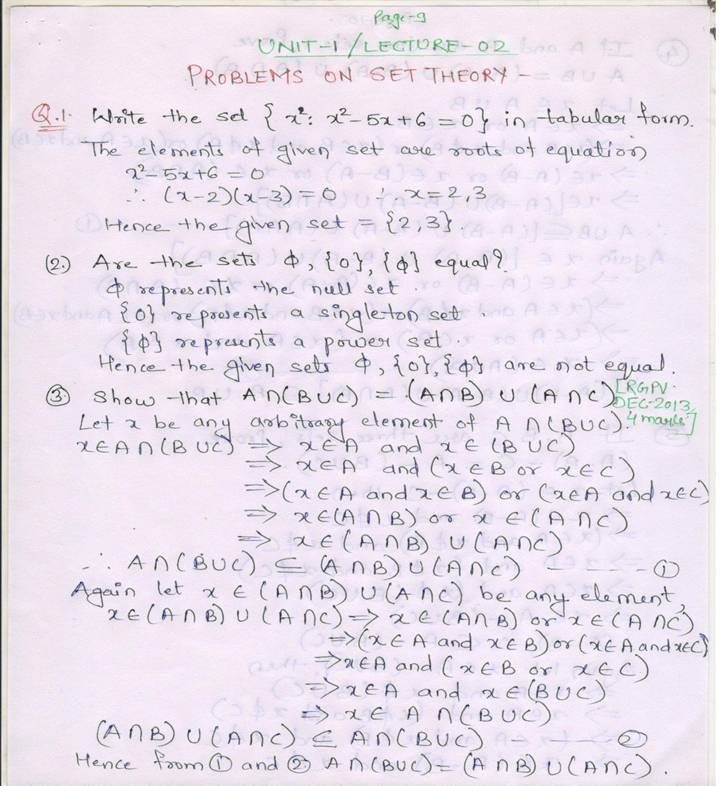 Page-9
UNIT-1/LECTURE-02
PROBLEMS ON SET THEORY-
Q.1. Write the set { x²: x²-5x+6=0} in tabular form.
The elements of given set are roots of equation
x²-5x+6=0
∴ (x-2)(x-3)=0 ∴ x=2,3
Hence the given set = {2,3}.
(2.) Are the sets Φ, {0}, {Φ} equal?
Φ represents the null set.
{0} represents a singleton set.
{Φ} represents a power set.
Hence the given sets Φ, {0}, {Φ} are not equal.
③ Show that A∩(B∪C) = (A∩B) ∪ (A∩C) [RGPV. DEC-2013, 4 marks]
Let x be any arbitrary element of A∩(B∪C).
x∈A∩(B∪C) ⇒ x∈A and x∈(B∪C)
⇒ x∈A and (x∈B or x∈C)
⇒ (x∈A and x∈B) or (x∈A and x∈C)
⇒ x∈(A∩B) or x∈(A∩C)
⇒ x∈(A∩B) ∪(A∩C)
∴ A∩(B∪C) ⊆ (A∩B)∪(A∩C) - ①
Again let x ∈ (A∩B) ∪(A∩C) be any element,
x∈(A∩B)∪(A∩C) ⇒ x∈(A∩B) or x∈(A∩C)
⇒ (x∈A and x∈B) or (x∈A and x∈C)
⇒ x∈A and (x∈B or x∈C)
⇒ x∈A and x∈(B∪C)
⇒ x∈A∩(B∪C)
(A∩B)∪(A∩C) ⊆ A∩(B∪C) - - - ②
Hence from ① and ② A∩(B∪C) = (A∩B)∪(A∩C).